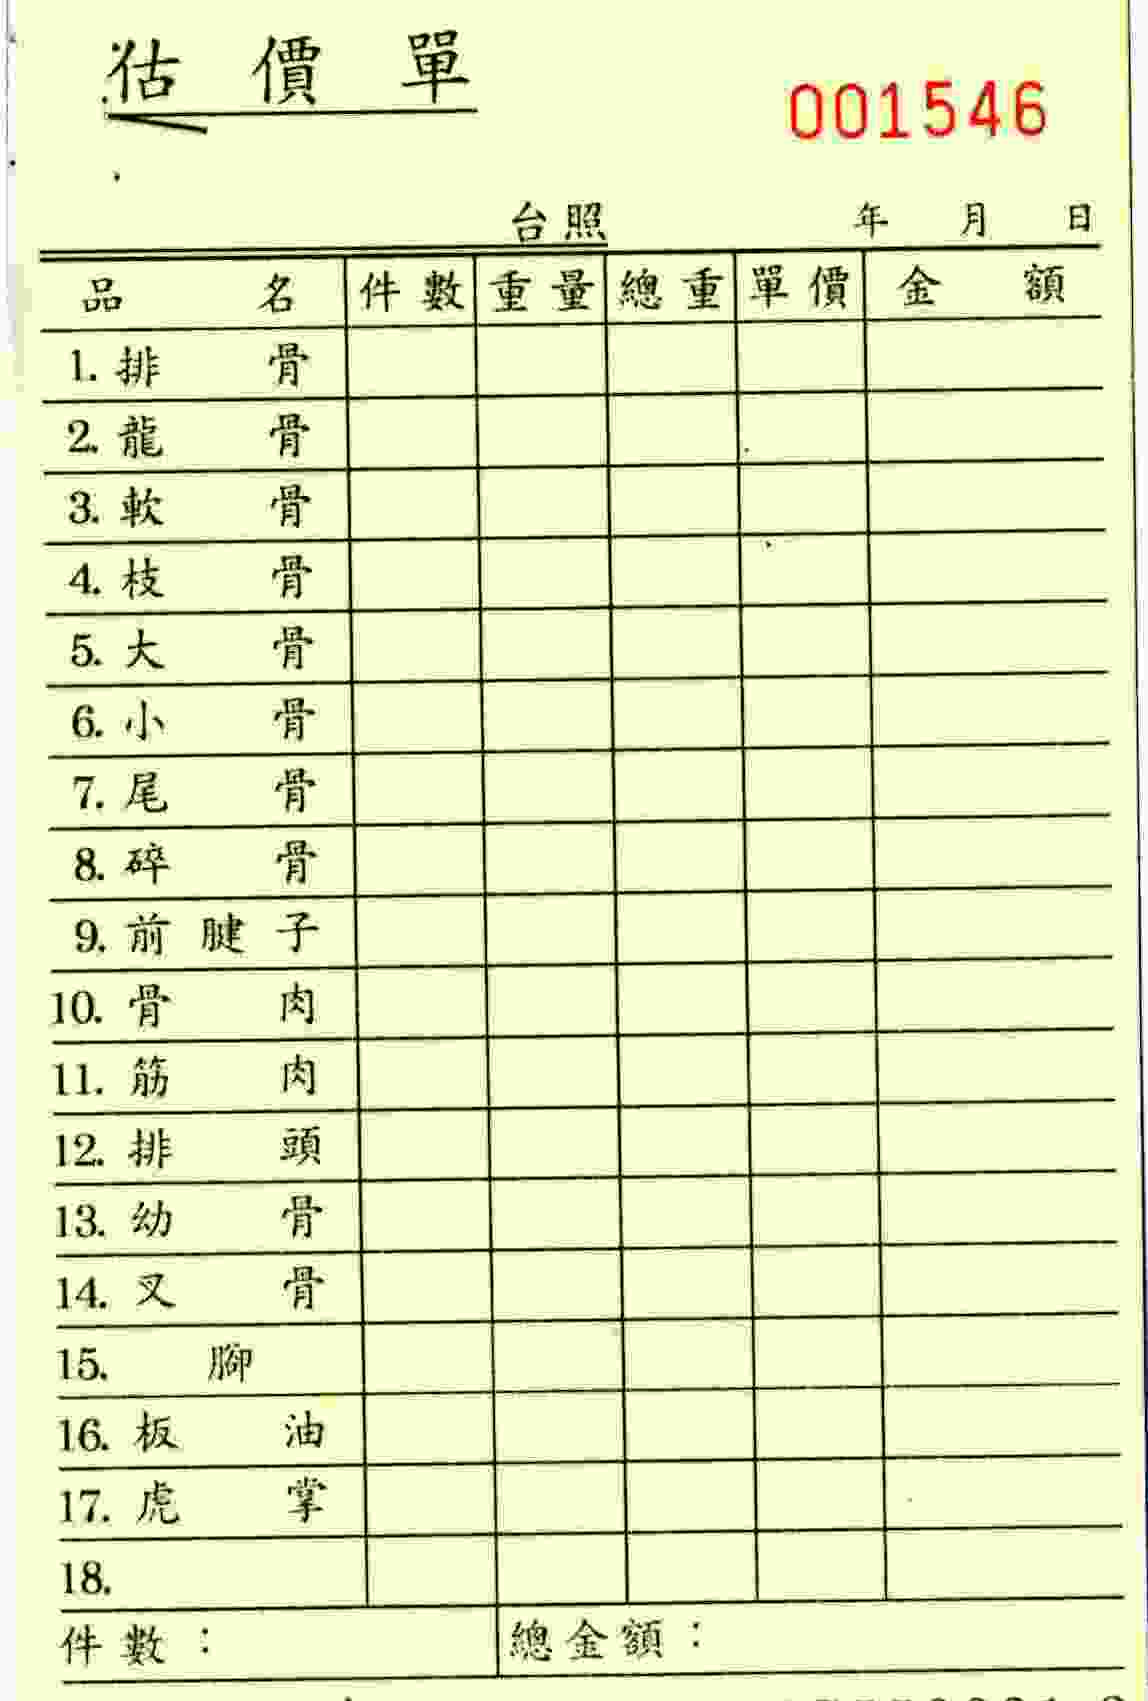 估價單
001546
台照 年 月 日
品名 件數 重量 總重 單價 金額
1. 排骨
2. 龍骨
3. 軟骨
4. 枝骨
5. 大骨
6. 小骨
7. 尾骨
8. 碎骨
9. 前腱子
10. 骨肉
11. 筋肉
12. 排頭
13. 幼骨
14. 叉骨
15. 腳
16. 板油
17. 虎掌
18.
件數： 總金額：